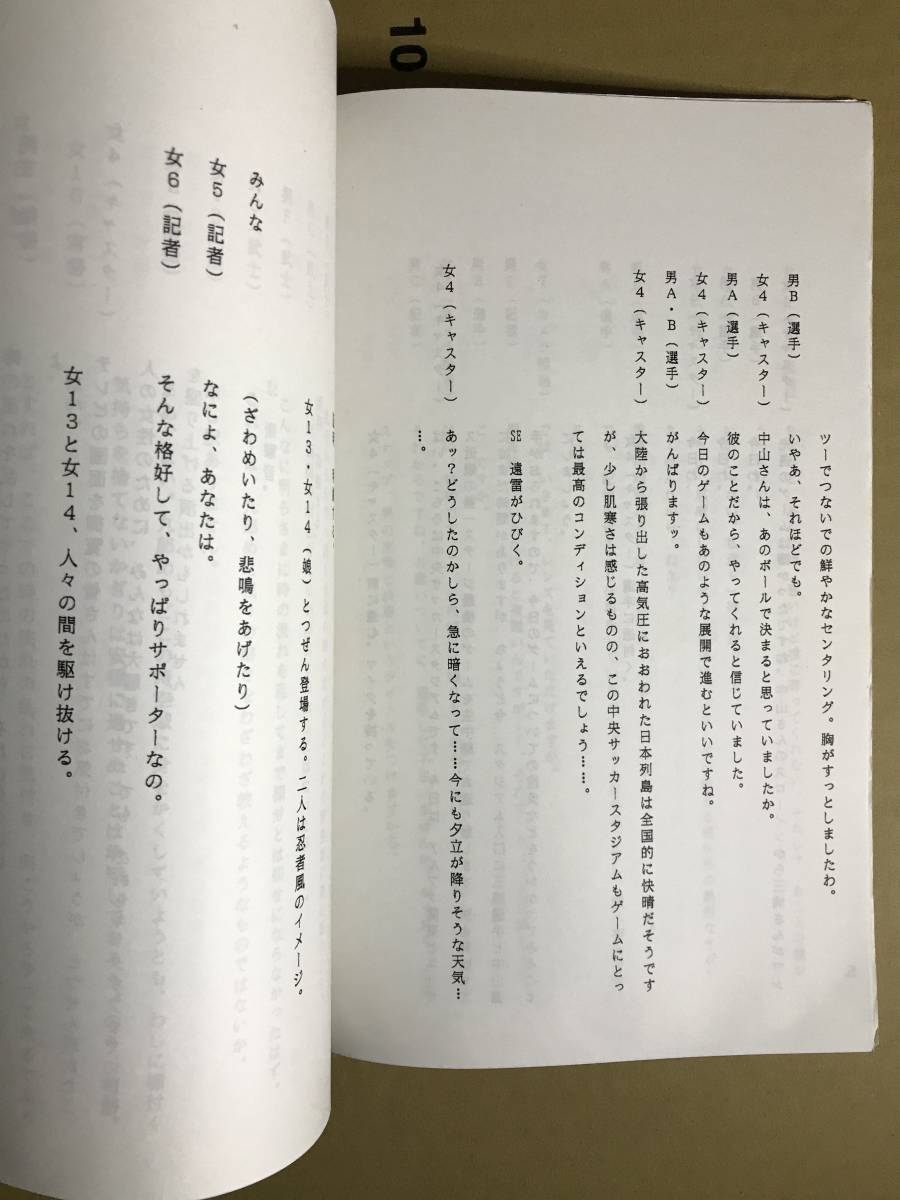 10
ツーでつないでの鮮やかなセンタリング。胸がすっとしましたわ。
男B（選手） いやあ、それほどでも。
女4（キャスター） 中山さんは、あのボールで決まると思っていましたか。
男A（選手） 彼のことだから、やってくれると信じていました。
女4（キャスター） 今日のゲームもあのような展開で進むといいですね。
男A・B（選手） がんばりますッ。
女4（キャスター） 大陸から張り出した高気圧におおわれた日本列島は全国的に快晴だそうです
が、少し肌寒さは感じるものの、この中央サッカースタジアムもゲームにとっ
ては最高のコンディションといえるでしょう……。
SE 遠雷がひびく。
女4（キャスター） あッ？どうしたのかしら、急に暗くなって……今にも夕立が降りそうな天気…
…。
女13・女14（娘）とつぜん登場する。二人は忍者風のイメージ。
みんな （ざわめいたり、悲鳴をあげたり）
女5（記者） なによ、あなたは。
女6（記者） そんな格好して、やっぱりサポーターなの。
女13と女14、人々の間を駆け抜ける。